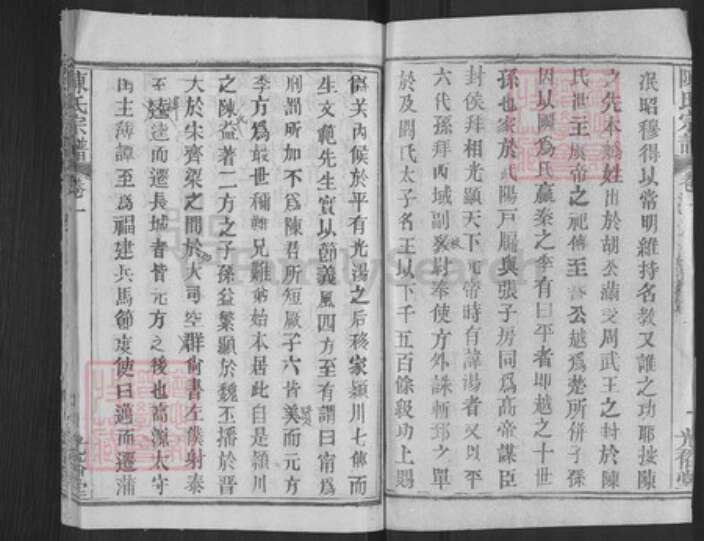 陳氏宗譜
泯昭穆得以常明維持名教又誰之功耶按陳
之先本媯姓出於胡公滿受周武王之封於陳
氏世主虞帝之祀傳至公越爲楚所併子孫
因以國爲氏嬴秦之季有曰平者即越之十世
孫也家於武陽戸牖與張子房同爲高帝謀臣
封侯拜相光顯天下元帝時有諱湯者又以平
六代孫拜西域副尉奉使方外誅斬郅之單
於及閼氏太子名王以下千五百餘級功上賜
爵关內候於平有光湯之后移家潁川七傳而
生文範先生實以節義風四方至有謂曰甯爲
刑罰所加不爲陳君所短厥子六皆美而元方
季方爲最世稱難兄難弟始本居此自是潁川
之陳益著二方之子孫益繁顯於魏丕播於晋
大於宋齊梁之間於大司空群尚書左僕射泰
至逵逵而遷長城者皆元方之後也高源太守
西主薄譚至爲福建兵馬節度使曰邁而遷蒲
陳氏宗譜
卷一